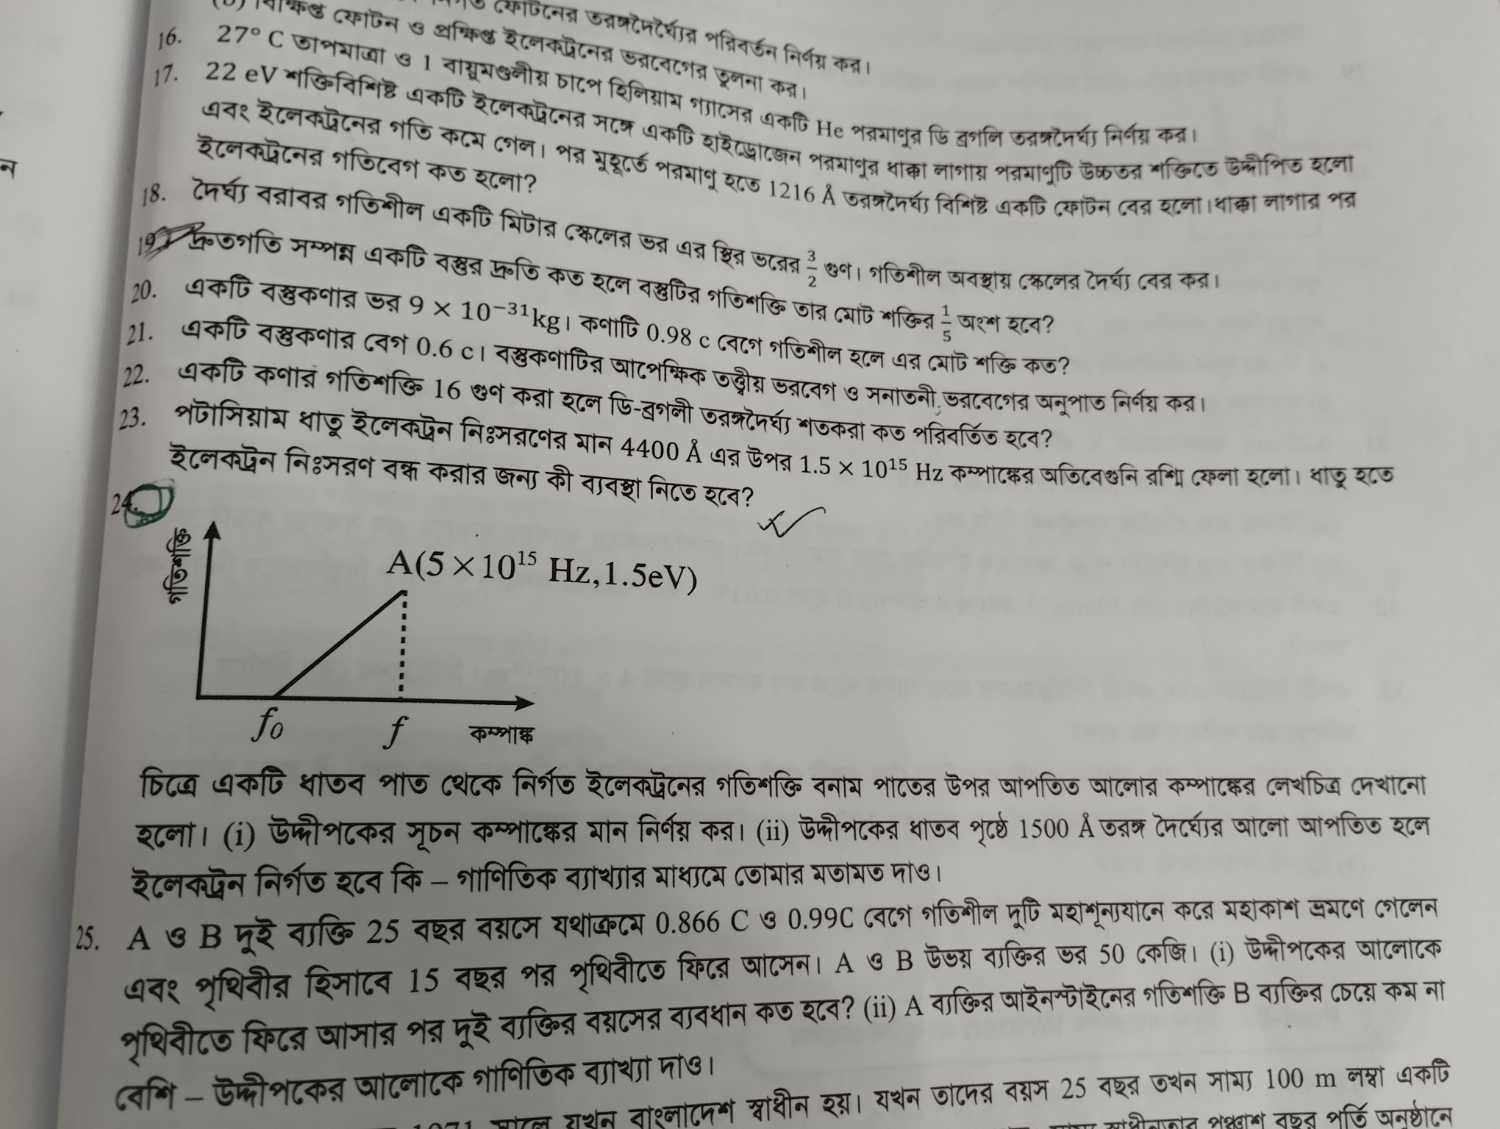 ফোটনের তরঙ্গদৈর্ঘ্যের পরিবর্তন নির্ণয় কর।
(b) বিক্ষিপ্ত ফোটন ও প্রক্ষিপ্ত ইলেকট্রনের ভরবেগের তুলনা কর।
16. 27° C তাপমাত্রা ও 1 বায়ুমণ্ডলীয় চাপে হিলিয়াম গ্যাসের একটি He পরমাণুর ডি ব্রগলি তরঙ্গদৈর্ঘ্য নির্ণয় কর।
17. 22 eV শক্তিবিশিষ্ট একটি ইলেকট্রনের সঙ্গে একটি হাইড্রোজেন পরমাণুর ধাক্কা লাগায় পরমাণুটি উচ্চতর শক্তিতে উদ্দীপিত হলো
এবং ইলেকট্রনের গতি কমে গেল। পর মুহূর্তে পরমাণু হতে 1216 Å তরঙ্গদৈর্ঘ্য বিশিষ্ট একটি ফোটন বের হলো।ধাক্কা লাগার পর
ইলেকট্রনের গতিবেগ কত হলো?
18. দৈর্ঘ্য বরাবর গতিশীল একটি মিটার স্কেলের ভর এর স্থির ভরের 3/2 গুণ। গতিশীল অবস্থায় স্কেলের দৈর্ঘ্য বের কর।
19. দ্রুতগতি সম্পন্ন একটি বস্তুর দ্রুতি কত হলে বস্তুটির গতিশক্তি তার মোট শক্তির 1/5 অংশ হবে?
20. একটি বস্তুকণার ভর 9 × 10⁻³¹kg। কণাটি 0.98 c বেগে গতিশীল হলে এর মোট শক্তি কত?
21. একটি বস্তুকণার বেগ 0.6 c। বস্তুকণাটির আপেক্ষিক তত্ত্বীয় ভরবেগ ও সনাতনী ভরবেগের অনুপাত নির্ণয় কর।
22. একটি কণার গতিশক্তি 16 গুণ করা হলে ডি-ব্রগলী তরঙ্গদৈর্ঘ্য শতকরা কত পরিবর্তিত হবে?
23. পটাসিয়াম ধাতু ইলেকট্রন নিঃসরণের মান 4400 Å এর উপর 1.5 × 10¹⁵ Hz কম্পাঙ্কের অতিবেগুনি রশ্মি ফেলা হলো। ধাতু হতে
ইলেকট্রন নিঃসরণ বন্ধ করার জন্য কী ব্যবস্থা নিতে হবে?
24.
গতিশক্তি
A(5×10¹⁵ Hz,1.5eV)
f₀
f
কম্পাঙ্ক
চিত্রে একটি ধাতব পাত থেকে নির্গত ইলেকট্রনের গতিশক্তি বনাম পাতের উপর আপতিত আলোর কম্পাঙ্কের লেখচিত্র দেখানো
হলো। (i) উদ্দীপকের সূচন কম্পাঙ্কের মান নির্ণয় কর। (ii) উদ্দীপকের ধাতব পৃষ্ঠে 1500 Å তরঙ্গ দৈর্ঘ্যের আলো আপতিত হলে
ইলেকট্রন নির্গত হবে কি – গাণিতিক ব্যাখ্যার মাধ্যমে তোমার মতামত দাও।
25. A ও B দুই ব্যক্তি 25 বছর বয়সে যথাক্রমে 0.866 C ও 0.99C বেগে গতিশীল দুটি মহাশূন্যযানে করে মহাকাশ ভ্রমণে গেলেন
এবং পৃথিবীর হিসাবে 15 বছর পর পৃথিবীতে ফিরে আসেন। A ও B উভয় ব্যক্তির ভর 50 কেজি। (i) উদ্দীপকের আলোকে
পৃথিবীতে ফিরে আসার পর দুই ব্যক্তির বয়সের ব্যবধান কত হবে? (ii) A ব্যক্তির আইনস্টাইনের গতিশক্তি B ব্যক্তির চেয়ে কম না
বেশি – উদ্দীপকের আলোকে গাণিতিক ব্যাখ্যা দাও।
1971 সালে যখন বাংলাদেশ স্বাধীন হয়। যখন তাদের বয়স 25 বছর তখন সাম্য 100 m লম্বা একটি
পঞ্চাশ বছর পূর্তি অনুষ্ঠানে